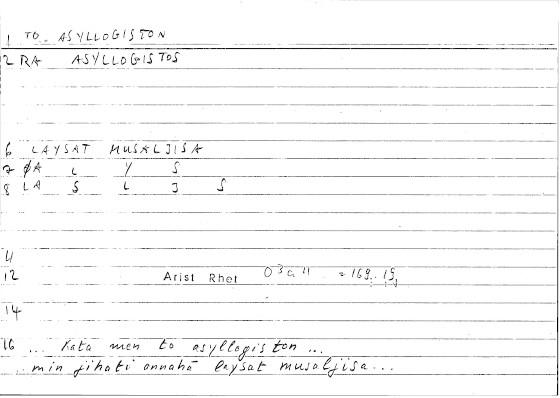 1 TO ASYLLOGISTON
2 RA ASYLLOGISTOS
6 LAYSAT MUSALJISA
7 ØA L Y S
8 LA S L J S
11
12 Arist Rhet 03a11 = 169, 19
14
16 ... Kata men to asyllogiston ...
min jihati annahā laysat musaljisa ...